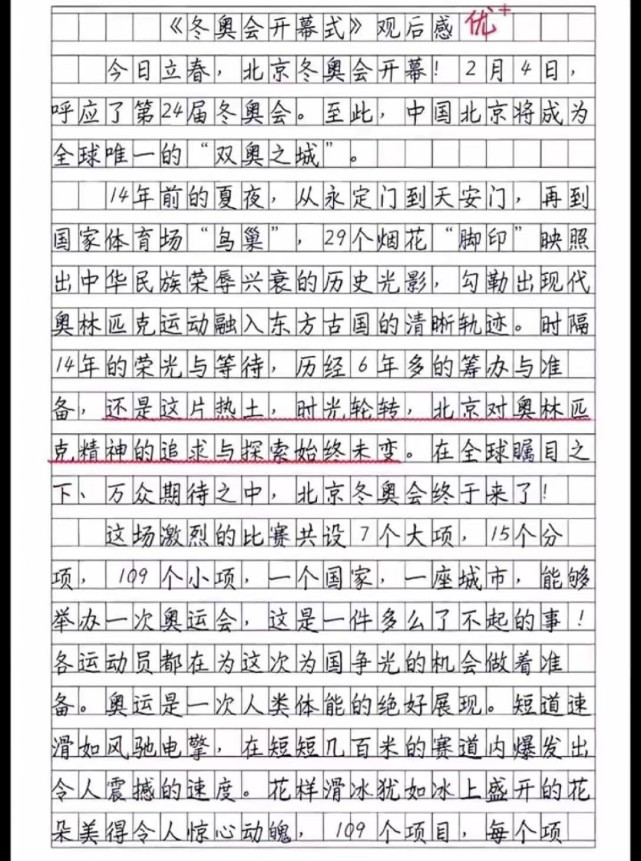 《冬奥会开幕式》观后感 优+
今日立春，北京冬奥会开幕！2月4日，
呼应了第24届冬奥会。至此，中国北京将成为
全球唯一的“双奥之城”。
14年前的夏夜，从永定门到天安门，再到
国家体育场“鸟巢”，29个烟花“脚印”映照
出中华民族荣辱兴衰的历史光影，勾勒出现代
奥林匹克运动融入东方古国的清晰轨迹。时隔
14年的荣光与等待，历经6年多的筹办与准
备，还是这片热土，时光轮转，北京对奥林匹
克精神的追求与探索始终未变。在全球瞩目之
下、万众期待之中，北京冬奥会终于来了！
这场激烈的比赛共设7个大项，15个分
项，109个小项，一个国家，一座城市，能够
举办一次奥运会，这是一件多么了不起的事！
各运动员都在为这次为国争光的机会做着准
备。奥运是一次人类体能的绝好展现。短道速
滑如风驰电掣，在短短几百米的赛道内爆发出
令人震撼的速度。花样滑冰犹如冰上盛开的花
朵美得令人惊心动魄，109个项目，每个项